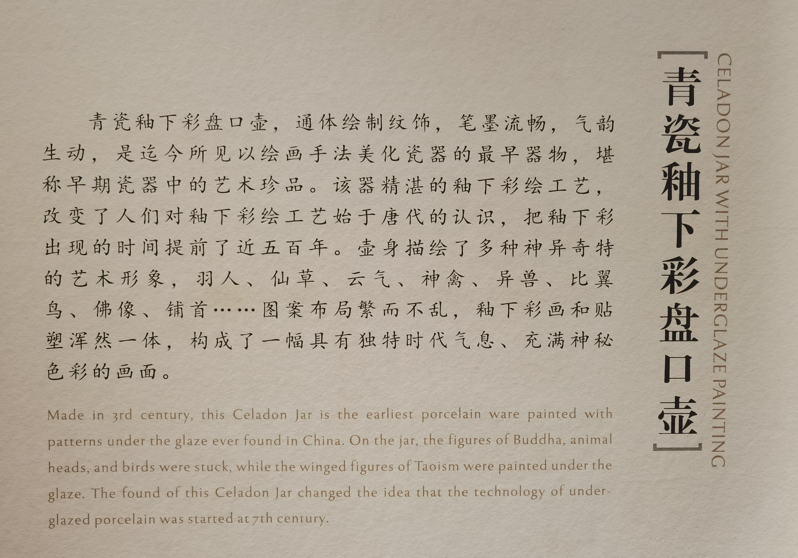 [青瓷釉下彩盘口壶]
CELADON JAR WITH UNDERGLAZE PAINTING
青瓷釉下彩盘口壶，通体绘制纹饰，笔墨流畅，气韵
生动，是迄今所见以绘画手法美化瓷器的最早器物，堪
称早期瓷器中的艺术珍品。该器精湛的釉下彩绘工艺，
改变了人们对釉下彩绘工艺始于唐代的认识，把釉下彩
出现的时间提前了近五百年。壶身描绘了多种神异奇特
的艺术形象，羽人、仙草、云气、神禽、异兽、比翼
鸟、佛像、铺首……图案布局繁而不乱，釉下彩画和贴
塑浑然一体，构成了一幅具有独特时代气息、充满神秘
色彩的画面。
Made in 3rd century, this Celadon Jar is the earliest porcelain ware painted with
patterns under the glaze ever found in China. On the jar, the figures of Buddha, animal
heads, and birds were stuck, while the winged figures of Taoism were painted under the
glaze. The found of this Celadon Jar changed the idea that the technology of under-
glazed porcelain was started at 7th century.